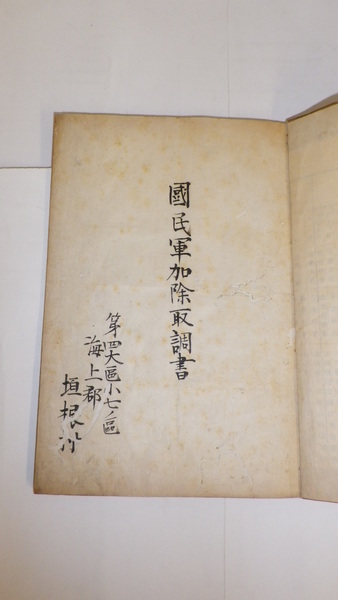 國民軍加除取調書
第四大區小七ノ區
海上郡
垣根村